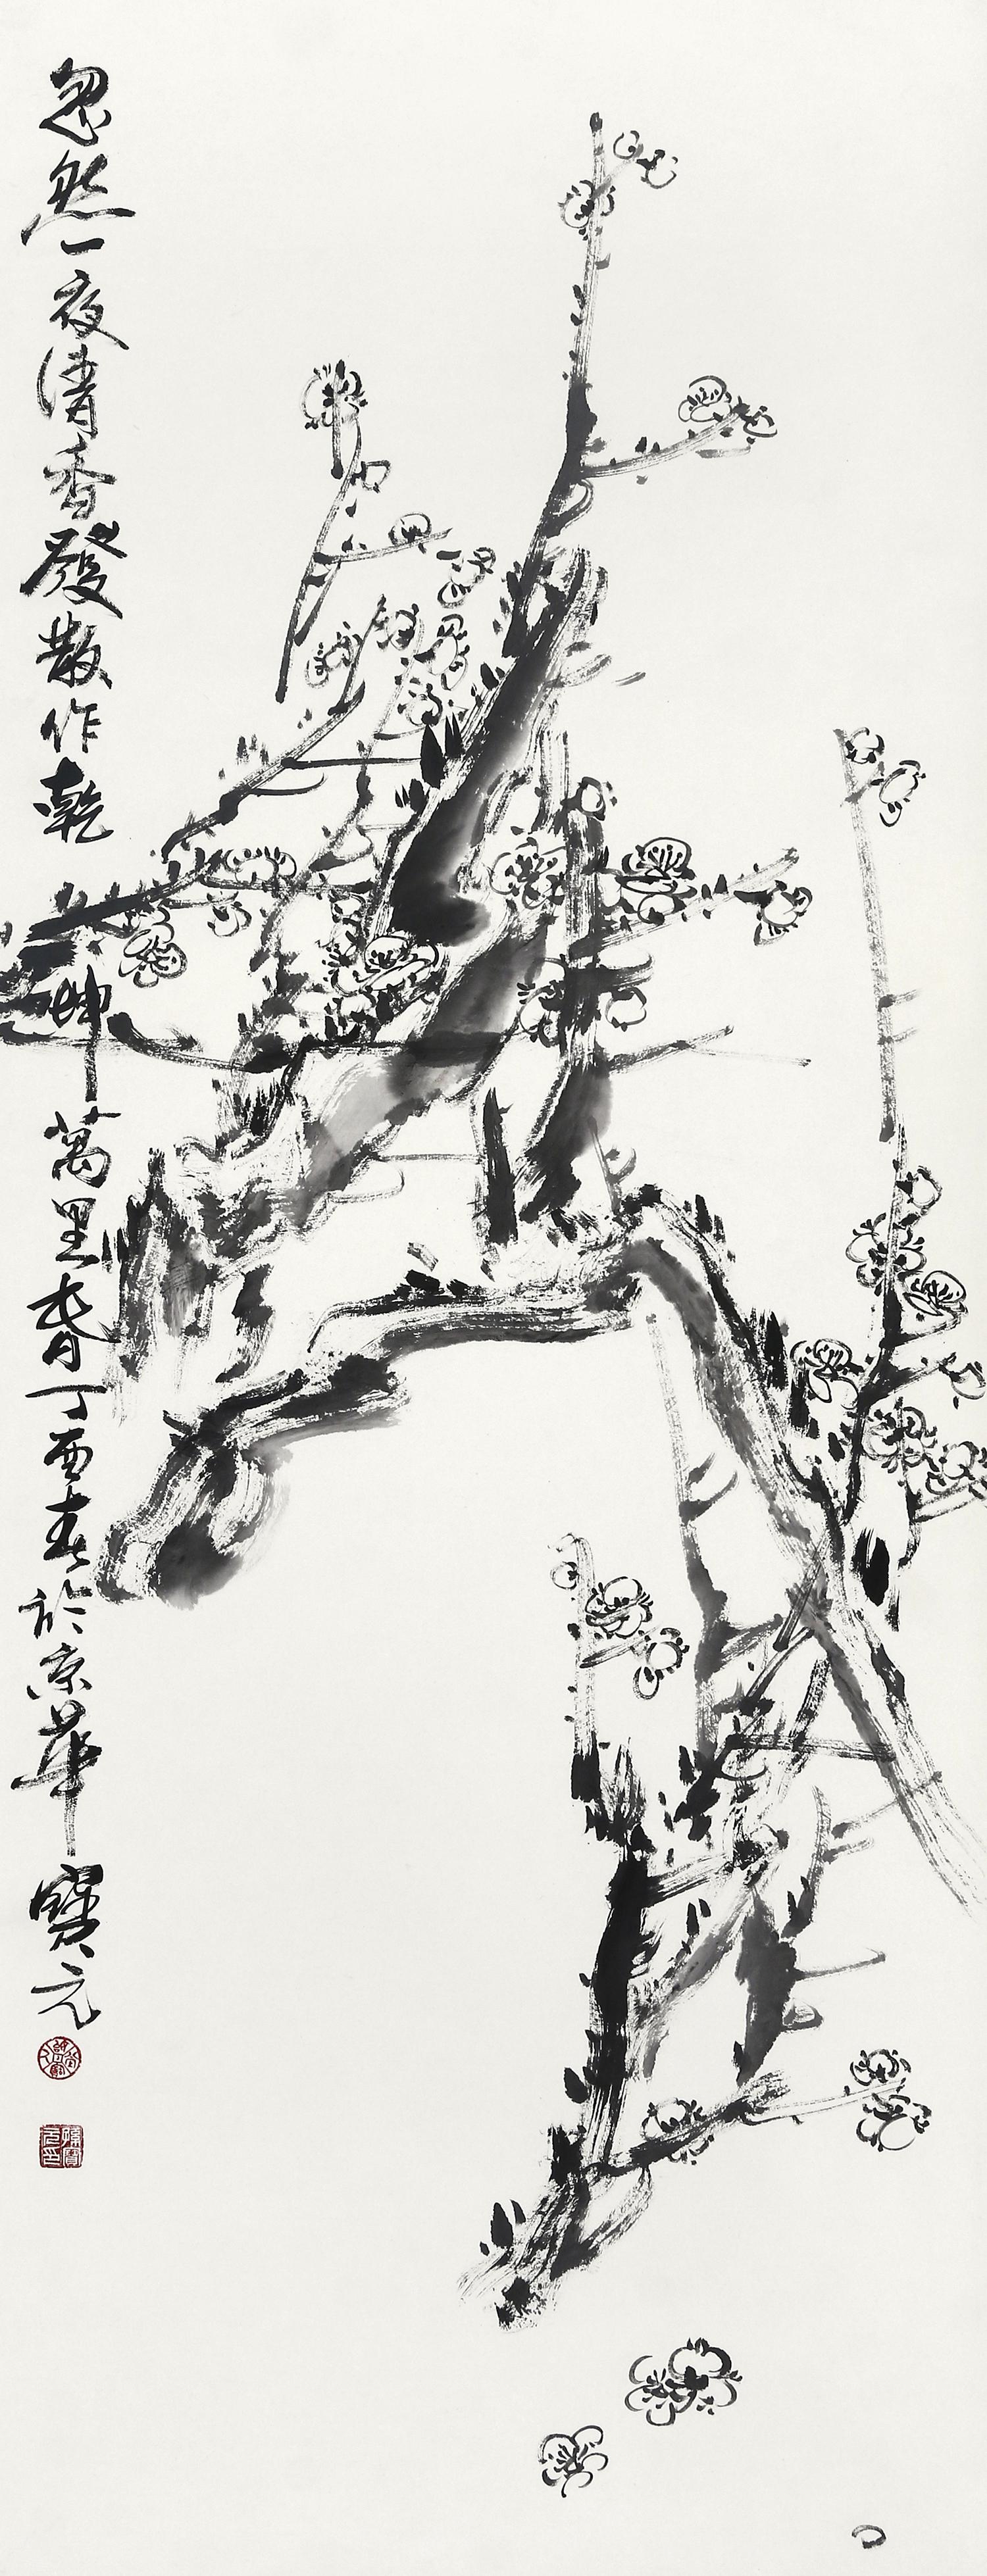 忽然一夜清香發散作乾坤萬里春丁酉春於京華寶元